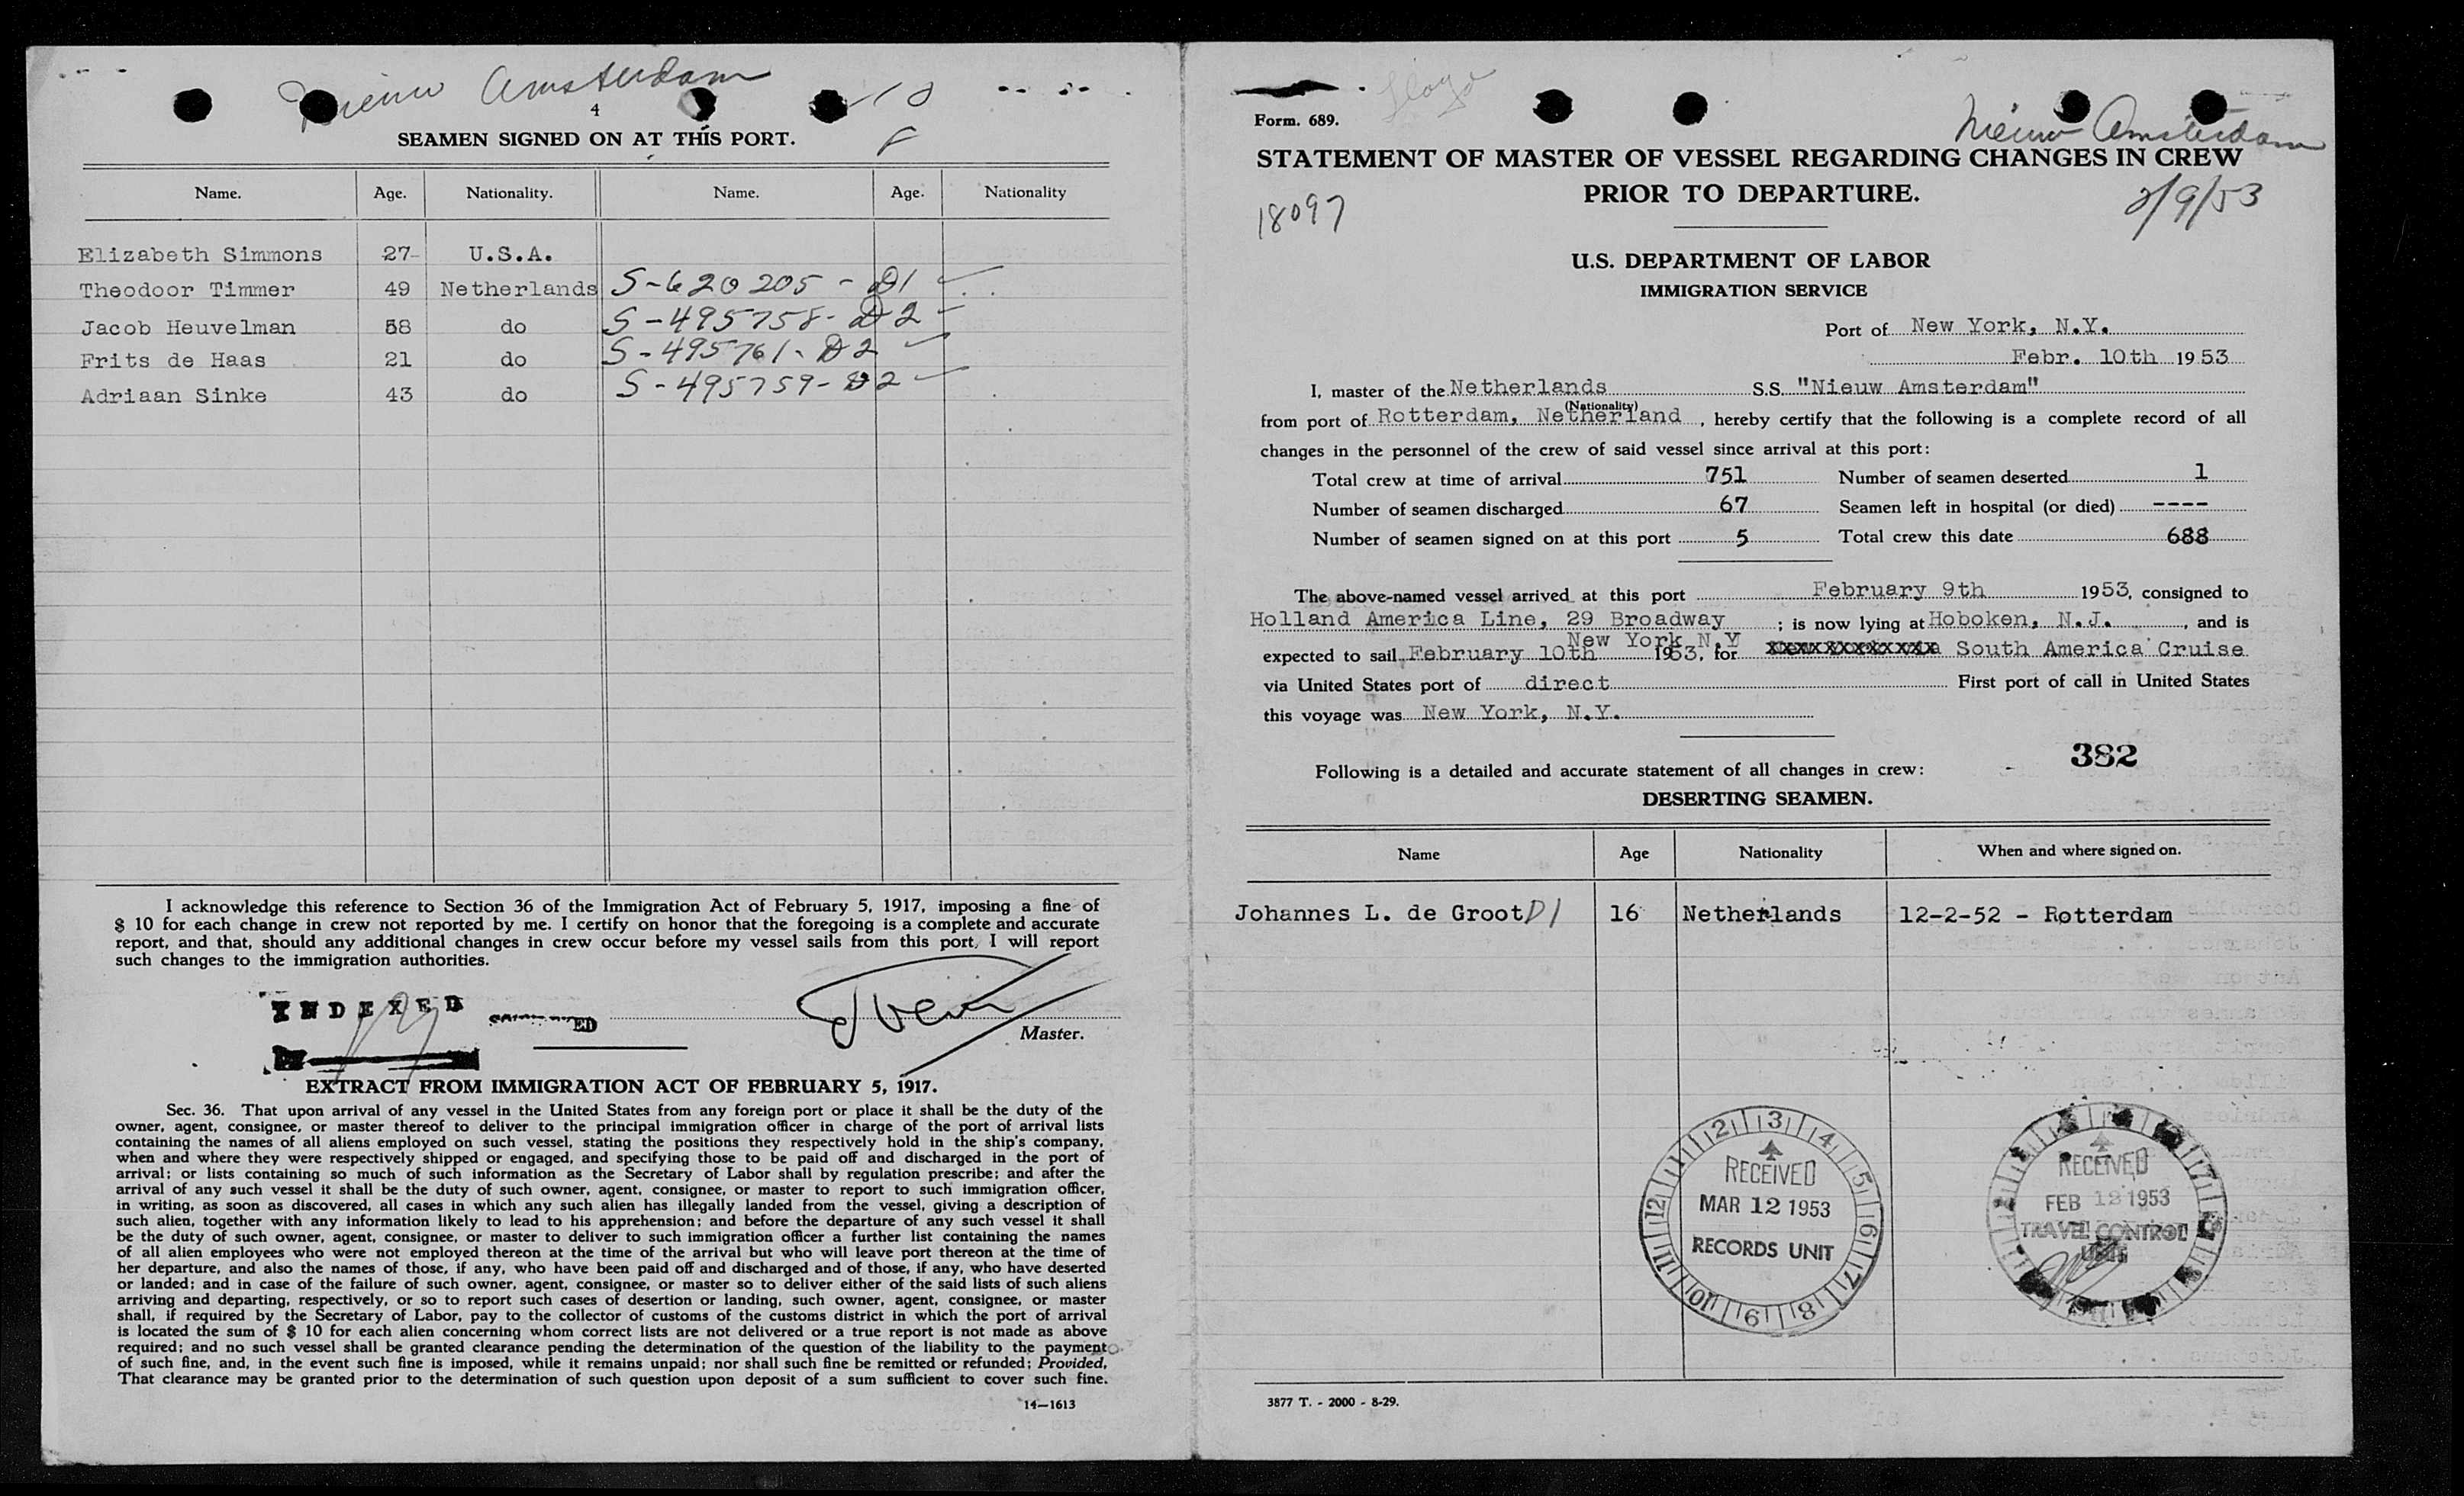 Nieuw Amsterdam
4
SEAMEN SIGNED ON AT THIS PORT.
Name. Age. Nationality. Name. Age. Nationality
Elizabeth Simmons 27 U.S.A.
Theodoor Timmer 49 Netherlands S-620205 - D1
Jacob Heuvelman 58 do S-495758- D2
Frits de Haas 21 do S-495761- D2
Adriaan Sinke 43 do S-495759- D2
I acknowledge this reference to Section 36 of the Immigration Act of February 5, 1917, imposing a fine of
$ 10 for each change in crew not reported by me. I certify on honor that the foregoing is a complete and accurate
report, and that, should any additional changes in crew occur before my vessel sails from this port, I will report
such changes to the immigration authorities.
INDEXED
Master.
EXTRACT FROM IMMIGRATION ACT OF FEBRUARY 5, 1917.
Sec. 36. That upon arrival of any vessel in the United States from any foreign port or place it shall be the duty of the
owner, agent, consignee, or master thereof to deliver to the principal immigration officer in charge of the port of arrival lists
containing the names of all aliens employed on such vessel, stating the positions they respectively hold in the ship's company,
when and where they were respectively shipped or engaged, and specifying those to be paid off and discharged in the port of
arrival; or lists containing so much of such information as the Secretary of Labor shall by regulation prescribe; and after the
arrival of any such vessel it shall be the duty of such owner, agent, consignee, or master to report to such immigration officer,
in writing, as soon as discovered, all cases in which any such alien has illegally landed from the vessel, giving a description of
such alien, together with any information likely to lead to his apprehension; and before the departure of any such vessel it shall
be the duty of such owner, agent, consignee, or master to deliver to such immigration officer a further list containing the names
of all alien employees who were not employed thereon at the time of the arrival but who will leave port thereon at the time of
her departure, and also the names of those, if any, who have been paid off and discharged and of those, if any, who have deserted
or landed; and in case of the failure of such owner, agent, consignee, or master so to deliver either of the said lists of such aliens
arriving and departing, respectively, or so to report such cases of desertion or landing, such owner, agent, consignee, or master
shall, if required by the Secretary of Labor, pay to the collector of customs of the customs district in which the port of arrival
is located the sum of $ 10 for each alien concerning whom correct lists are not delivered or a true report is not made as above
required; and no such vessel shall be granted clearance pending the determination of the question of the liability to the payment
of such fine, and, in the event such fine is imposed, while it remains unpaid; nor shall such fine be remitted or refunded; Provided,
That clearance may be granted prior to the determination of such question upon deposit of a sum sufficient to cover such fine.
14—1613
Form. 689.
Nieuw Amsterdam
STATEMENT OF MASTER OF VESSEL REGARDING CHANGES IN CREW
PRIOR TO DEPARTURE.
18097
2/9/53
U.S. DEPARTMENT OF LABOR
IMMIGRATION SERVICE
Port of New York, N.Y.
Febr. 10th 1953
I, master of the Netherlands S.S. "Nieuw Amsterdam"
(Nationality)
from port of Rotterdam, Netherland, hereby certify that the following is a complete record of all
changes in the personnel of the crew of said vessel since arrival at this port:
Total crew at time of arrival 751 Number of seamen deserted 1
Number of seamen discharged 67 Seamen left in hospital (or died) ----
Number of seamen signed on at this port 5 Total crew this date 688
The above-named vessel arrived at this port February 9th 1953, consigned to
Holland America Line, 29 Broadway ; is now lying at Hoboken, N.J. , and is
New York N.Y
expected to sail February 10th 1953, for South America Cruise
via United States port of direct First port of call in United States
this voyage was New York, N.Y.
382
Following is a detailed and accurate statement of all changes in crew:
DESERTING SEAMEN.
Name Age Nationality When and where signed on.
Johannes L. de Groot D1 16 Netherlands 12-2-52 - Rotterdam
12 1 2 3 4 5 6 7 8 9 10 11
RECEIVED
MAR 12 1953
RECORDS UNIT
RECEIVED
FEB 12 1953
TRAVEL CONTROL
UNIT
3877 T. - 2000 - 8-29.